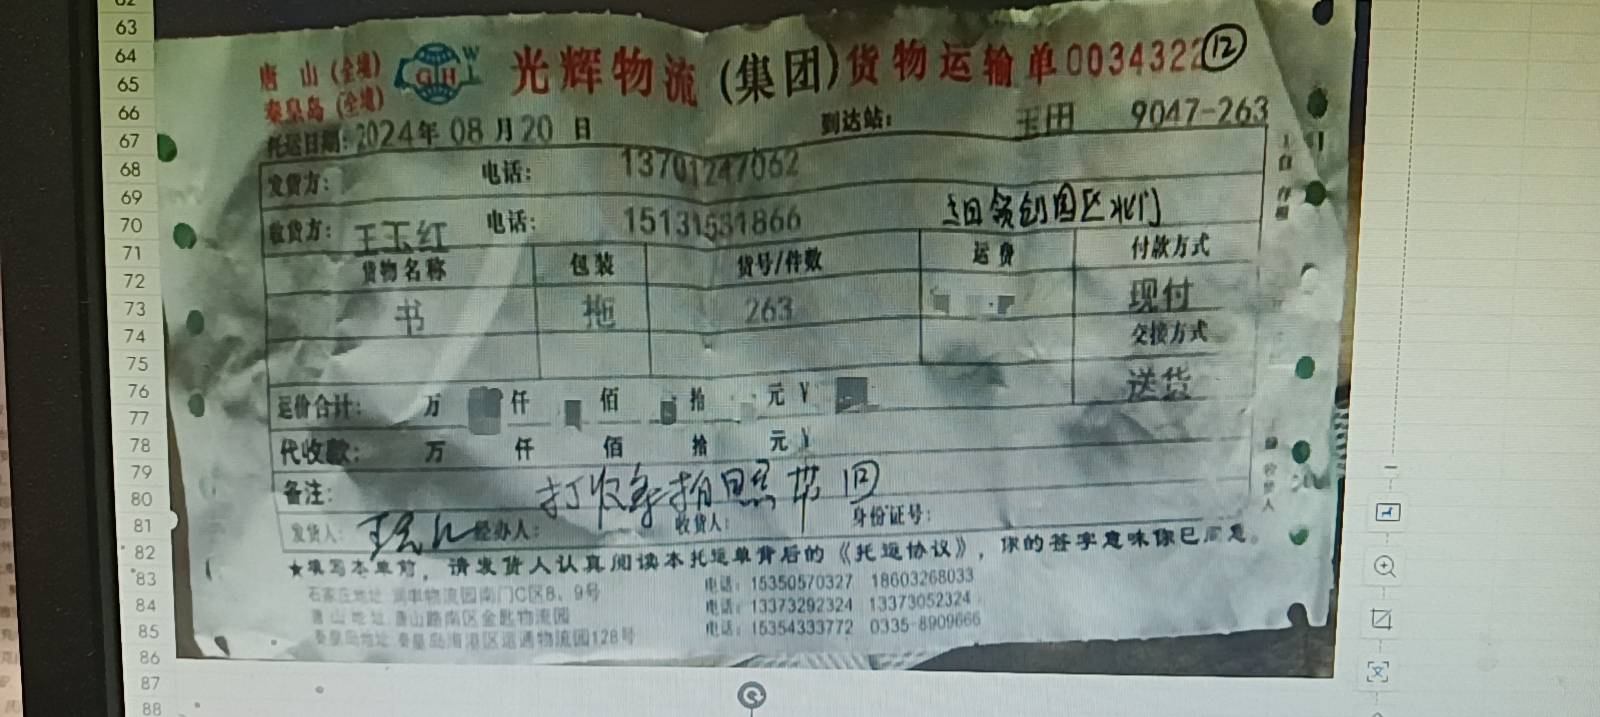 唐 山(全境)
秦皇岛(全境)
GH WL
光辉物流(集团)货物运输单0034322 ⑫
托运日期:2024年 08 月 20 日 到达站: 玉田 9047-263
发货方: 电话: 13701247062
收货方: 王玉红 电话: 15131531866 北门
货物名称 包装 货号/件数 运费 付款方式
书 拖 263 现付
交接方式
送货
运价合计: 万 仟 佰 拾 元 ¥
代收款: 万 仟 佰 拾 元 ¥
备注: 打收条拍照带回
发货人: 经办人: 收货人: 身份证号:
★填写本单前,请发货人认真阅读本托运单背后的《托运协议》,你的签字意味你已同意。
石家庄地址 润丰物流园南门C区8、9号 电话:15350570327 18603268033
唐山地址 唐山路南区金匙物流园 电话:13373292324 13373052324
秦皇岛地址 秦皇岛海港区运通物流园128号 电话:15354333772 0335-8909666
63
64
65
66
67
68
69
70
71
72
73
74
75
76
77
78
79
80
81
82
83
84
85
86
87
88